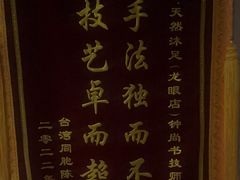 天然沐足（龙眼店）钟尚书技师
手法独而不
技艺卓而超
台湾同胞陈
二零二二年